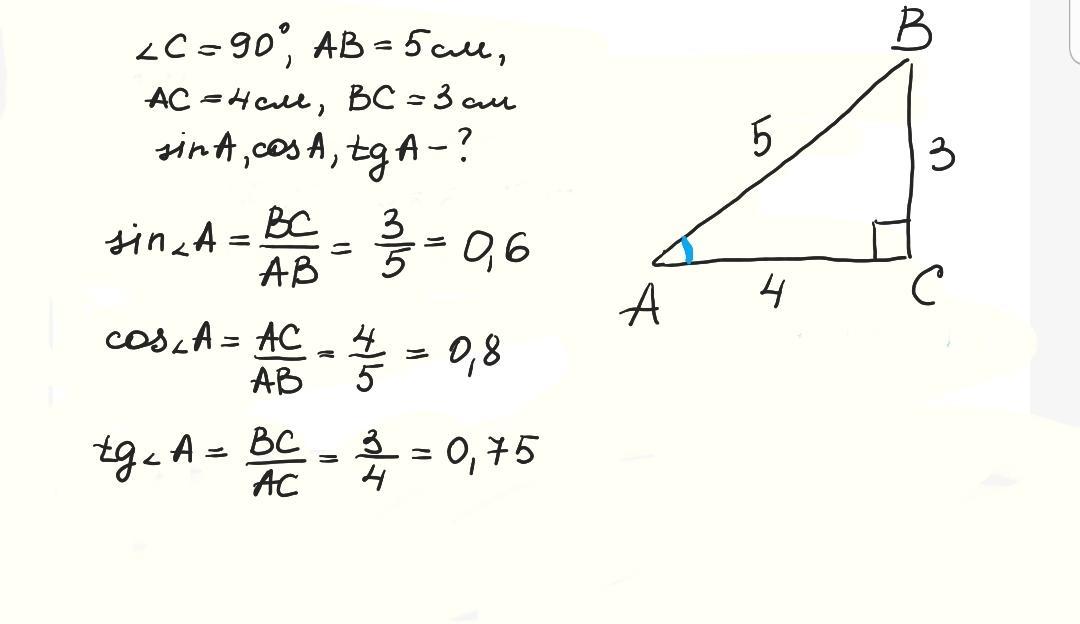 ∠C = 90°, AB = 5 см,
AC = 4 см, BC = 3 см
sin A, cos A, tg A - ?
sin∠A = BC/AB = 3/5 = 0,6
cos∠A = AC/AB = 4/5 = 0,8
tg∠A = BC/AC = 3/4 = 0,75
B
5
3
A
4
C